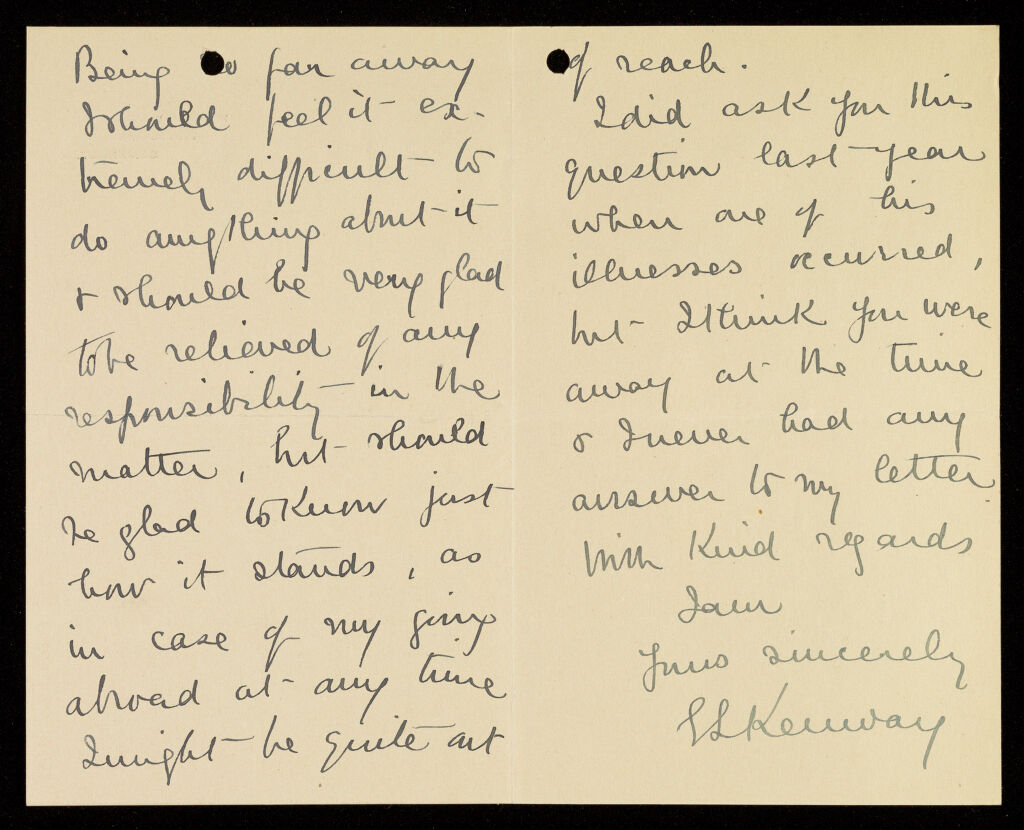 Being so far away
I should feel it ex-
tremely difficult to
do anything about it
& should be very glad
to be relieved of any
responsibility in the
matter, but should
be glad to know just
how it stands, as
in case of my going
abroad at any time
I might be quite out
of reach.
I did ask you this
question last year
when one of his
illnesses occurred,
but I think you were
away at the time
& I never had any
answer to my letter
With kind regards
I am
Yours sincerely
Kenway